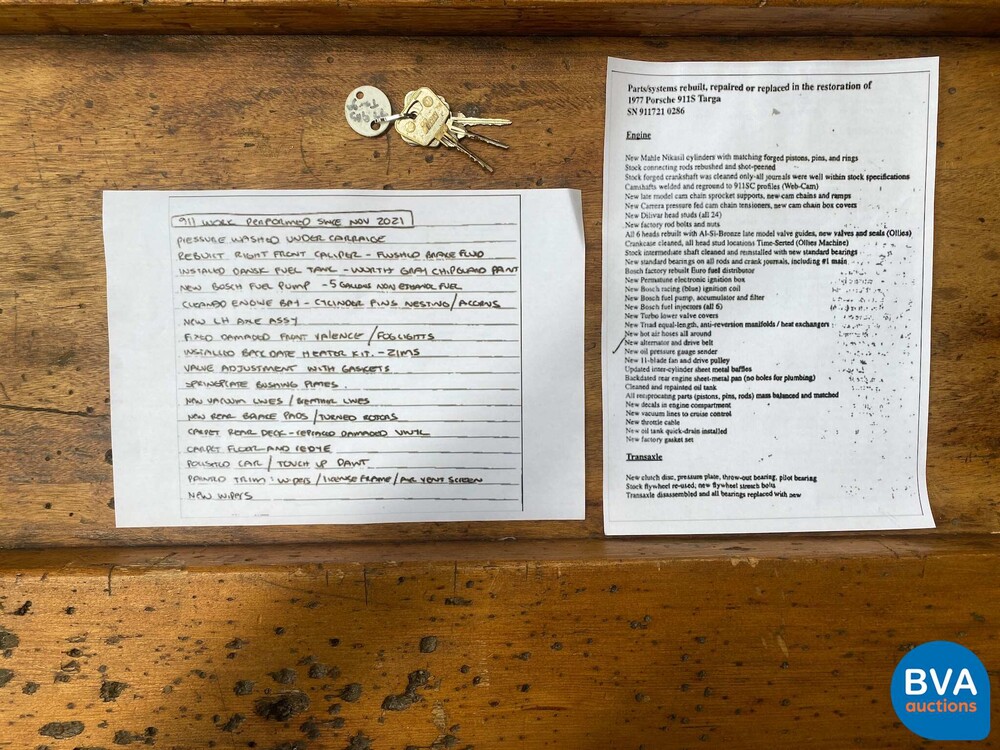 911 WORK PERFORMED SINCE NOV 2021
PRESSURE WASHED UNDER CARRAIGE
REBUILT RIGHT FRONT CALIPER - FLUSHED BRAKE FLUID
INSTALLED DANSK FUEL TANK - WURTH GRAY CHIPGUARD PAINT
NEW BOSCH FUEL PUMP - 5 GALLONS NON ETHANOL FUEL
CLEANED ENGINE BAY - CYLINDER FINS NESTING/ACORNS
NEW LH AXLE ASSY
FIXED DAMAGED FRONT VALENCE / FOGLIGHTS
INSTALLED BACKDATE HEATER KIT. - ZIMS
VALVE ADJUSTMENT WITH GASKETS
SPRINGPLATE BUSHING PLATES
NEW VACUUM LINES / BREATHER LINES
NEW REAR BRAKE PADS / TURNED ROTORS
CARPET REAR DECK - REPLACED DAMAGED VINYL
CARPET FLOOR AND REDYE
POLISHED CAR / TOUCH UP PAINT
PAINTED TRIM: WIPERS / LICENSE FRAME / AIR VENT SCREEN
NEW WIPERS
Parts/systems rebuilt, repaired or replaced in the restoration of
1977 Porsche 911S Targa
SN 911721 0286
Engine
New Mahle Nikasil cylinders with matching forged pistons, pins, and rings
Stock connecting rods rebushed and shot-peened
Stock forged crankshaft was cleaned only-all journals were well within stock specifications
Camshafts welded and reground to 911SC profiles (Web-Cam)
New late model cam chain sprocket supports, new cam chains and ramps
New Carrera pressure fed cam chain tensioners, new cam chain box covers
New Dilivar head studs (all 24)
New factory rod bolts and nuts
All 6 heads rebuilt with Al-Si-Bronze late model valve guides, new valves and seals (Ollies)
Crankcase cleaned, all head stud locations Time-Serted (Ollies Machine)
Stock intermediate shaft cleaned and reinstalled with new standard bearings
New standard bearings on all rods and crank journals, including #1 main
Bosch factory rebuilt Euro fuel distributor
New Permatune electronic ignition box
New Bosch racing (blue) ignition coil
New Bosch fuel pump, accumulator and filter
New Bosch fuel injectors (all 6)
New Turbo lower valve covers
New Triad equal-length, anti-reversion manifolds / heat exchangers
New hot air hoses all around
New alternator and drive belt
New oil pressure gauge sender
New 11-blade fan and drive pulley
Updated inter-cylinder sheet metal baffles
Backdated rear engine sheet-metal pan (no holes for plumbing)
Cleaned and repainted oil tank
All reciprocating parts (pistons, pins, rods) mass balanced and matched
New decals in engine compartment
New vacuum lines to cruise control
New throttle cable
New oil tank quick-drain installed
New factory gasket set
Transaxle
New clutch disc, pressure plate, throw-out bearing, pilot bearing
Stock flywheel re-used, new flywheel stretch bolts
Transaxle disassembled and all bearings replaced with new
BVA
auctions